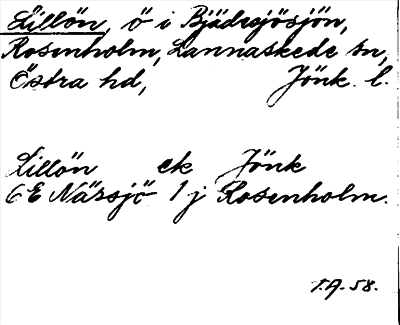 Lillön, ö i Bjädesjösjön,
Rosenholm, Lannaskede sn,
Östra hd, Jönk. l.
Lillön ek Jönk
6E Näusjö 1j Rosenholm.
T.A.-58.